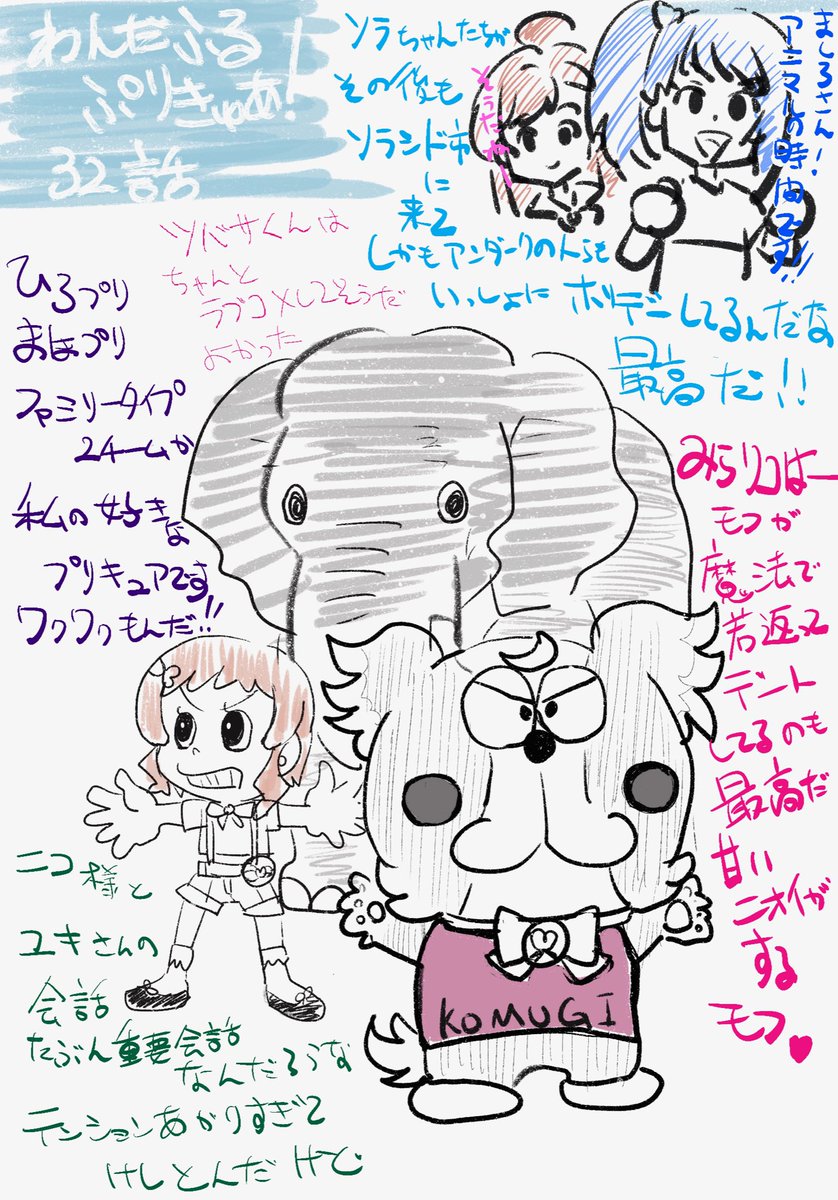 わんだふる
ぷりきゅあ!
32話
ソラちゃんたちが
その後も
ソラシド市
に
来て
しかもアンダーグの人らも
いっしょに ホリデーしてるんだな
最高だ!!
そうだねー
ましろさん!
アニマルの時間です!!
ツバサくんは
ちゃんと
ラブコメしてそうだ
よかった
ひろプリ
まほプリ
ファミリータイプ
2チームが
私の好きな
プリキュアです
ワクワクもんだ!!
みらリコはー
モフが
魔法で
若返って
デート
してるのも
最高だ
甘い
ニオイが
する
モフ♥
KOMUGI
ニコ様と
ユキさんの
会話
たぶん重要会話
なんだろうな
テンションあがりすぎて
けしとんだけど